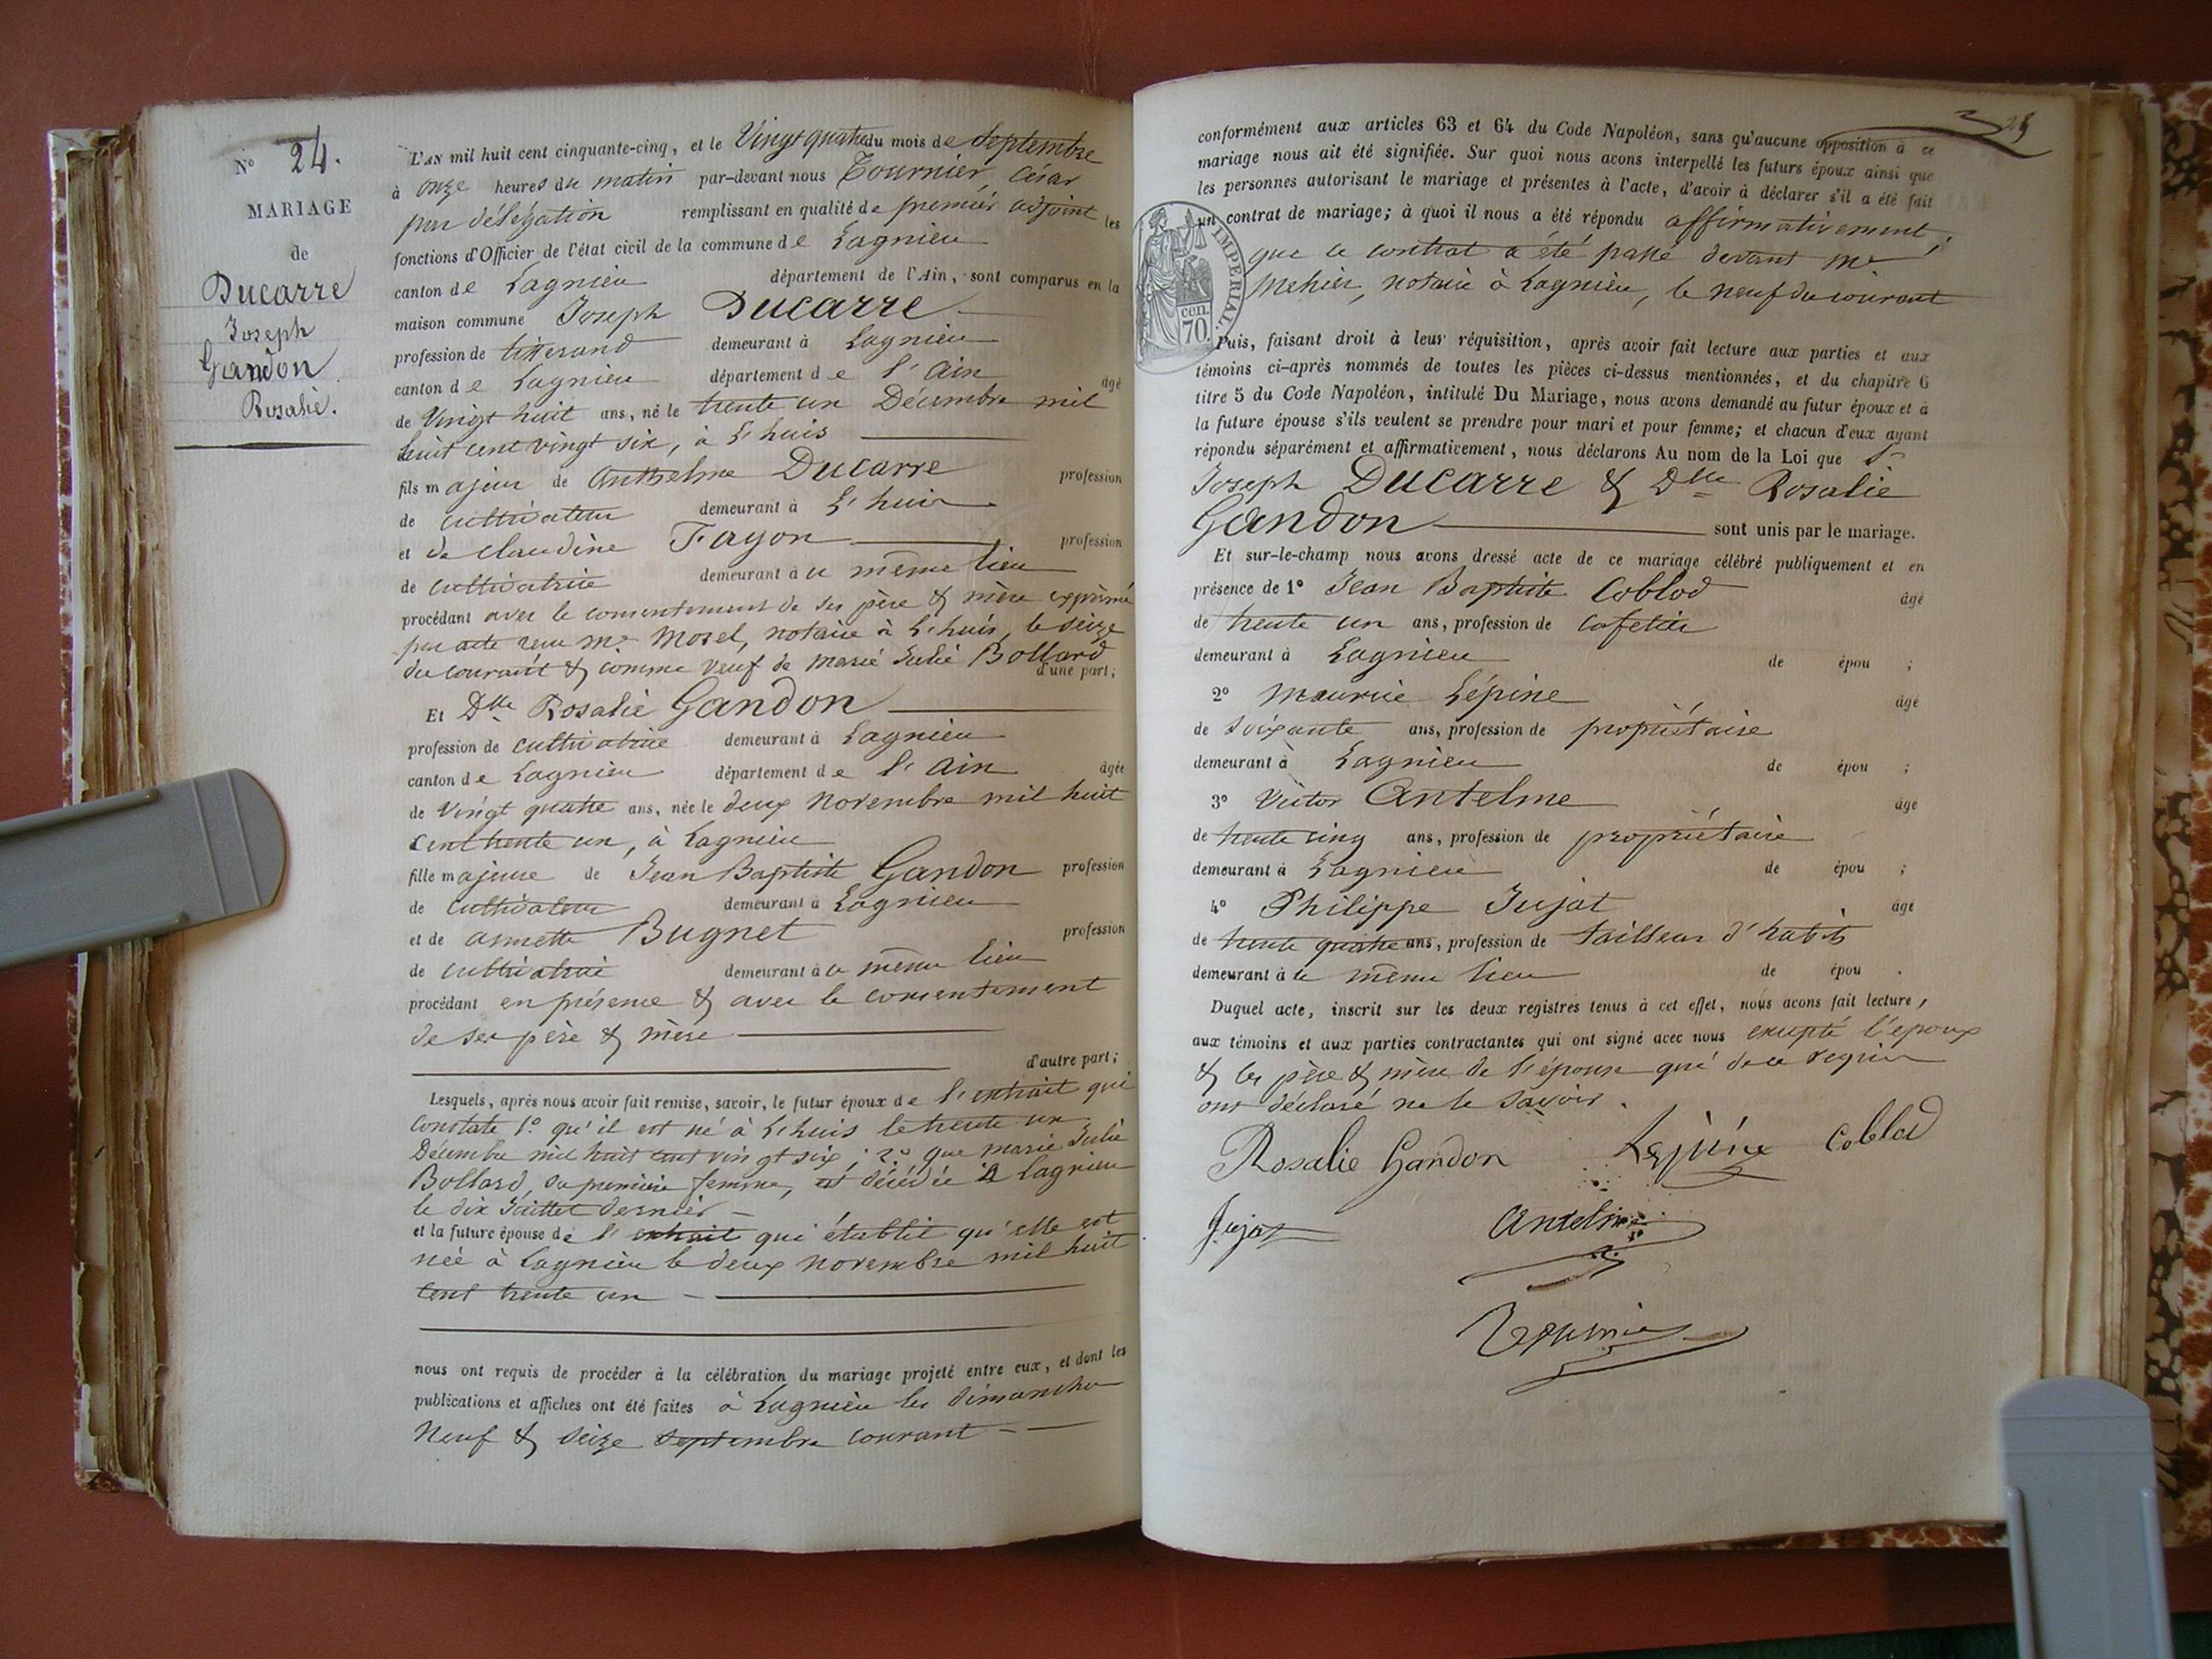 N° 24.
MARIAGE
de
Ducarre
Joseph
Gandon
Rosalie.
L'AN mil huit cent cinquante-cinq, et le Vingt quatre du mois de Septembre
à onze heures du matin par-devant nous Tournier, César
par délégation remplissant en qualité de premier adjoint les
fonctions d'Officier de l'état civil de la commune de Lagnieu
canton de Lagnieu département de l'Ain, sont comparus en la
maison commune Joseph Ducarre
profession de tisserand demeurant à Lagnieu
canton de Lagnieu département de l'Ain âgé
de Vingt huit ans, né le trente un Décembre mil
huit cent vingt six, à L'huis
fils majeur de Anthelme Ducarre profession
de cultivateur demeurant à L'huis
et de Claudine Fayon profession
de cultivatrice demeurant à u même lieu
procédant avec le consentement de ses père & mère exprimé
par acte reçu Me Morel, notaire à L'huis, le seize
du courant & comme veuf de Marie Julie Bollard
d'une part;
Et Dlle Rosalie Gandon
profession de cultivatrice demeurant à Lagnieu
canton de Lagnieu département de l'Ain âgée
de vingt quatre ans, née le deux novembre mil huit
cent trente un, à Lagnieu
fille majeure de Jean Baptiste Gandon profession
de cultivateur demeurant à Lagnieu
et de annette Bugnet profession
de cultivatrice demeurant à u même lieu
procédant en présence & avec le consentement
de ses père & mère
d'autre part;
Lesquels, après nous avoir fait remise, savoir, le futur époux de l'extrait qui
constate 1° qu'il est né à L'huis le trente un
Décembre mil huit cent vingt six; 2° que marie Julie
Bollard, sa première femme, est décédée à Lagnieu
le dix Juillet dernier
et la future épouse de l'extrait qui établit qu'elle est
née à Lagnieu le deux novembre mil huit
cent trente un
nous ont requis de procéder à la célébration du mariage projeté entre eux, et dont les
publications et affiches ont été faites à Lagnieu les dimanches
neuf & seize septembre courant
25
conformément aux articles 63 et 64 du Code Napoléon, sans qu'aucune opposition à ce
mariage nous ait été signifiée. Sur quoi nous avons interpellé les futurs époux ainsi que
les personnes autorisant le mariage et présentes à l'acte, d'avoir à déclarer s'il a été fait
un contrat de mariage; à quoi il nous a été répondu affirmativement,
que le contrat a été passé devant Me
Mehier, notaire à Lagnieu, le neuf du courant
IMPERIAL.
cen.
70.
Puis, faisant droit à leur réquisition, après avoir fait lecture aux parties et aux
témoins ci-après nommés de toutes les pièces ci-dessus mentionnées, et du chapitre 6
titre 5 du Code Napoléon, intitulé Du Mariage, nous avons demandé au futur époux et à
la future épouse s'ils veulent se prendre pour mari et pour femme; et chacun d'eux ayant
répondu séparément et affirmativement, nous déclarons Au nom de la Loi que Sr
Joseph Ducarre & Dlle Rosalie
Gandon sont unis par le mariage.
Et sur-le-champ nous avons dressé acte de ce mariage célébré publiquement et en
présence de 1° Jean Baptiste Coblod âgé
de trente un ans, profession de cafetier
demeurant à Lagnieu de épou ;
2° Maurice Lépine âgé
de soixante ans, profession de propriétaire
demeurant à Lagnieu de épou ;
3° Victor Antelme âgé
de trente cinq ans, profession de propriétaire
demeurant à Lagnieu de épou ;
4° Philippe Jujat âgé
de trente quatre ans, profession de tailleur d'habits
demeurant à u même lieu de épou .
Duquel acte, inscrit sur les deux registres tenus à cet effet, nous avons fait lecture,
aux témoins et aux parties contractantes qui ont signé avec nous excepté l'époux
& les père & mère de l'épouse qui de ce requis
ont déclaré ne le savoir.
Rosalie Gandon Lepine Coblod
Jujat Antelme
Tournier